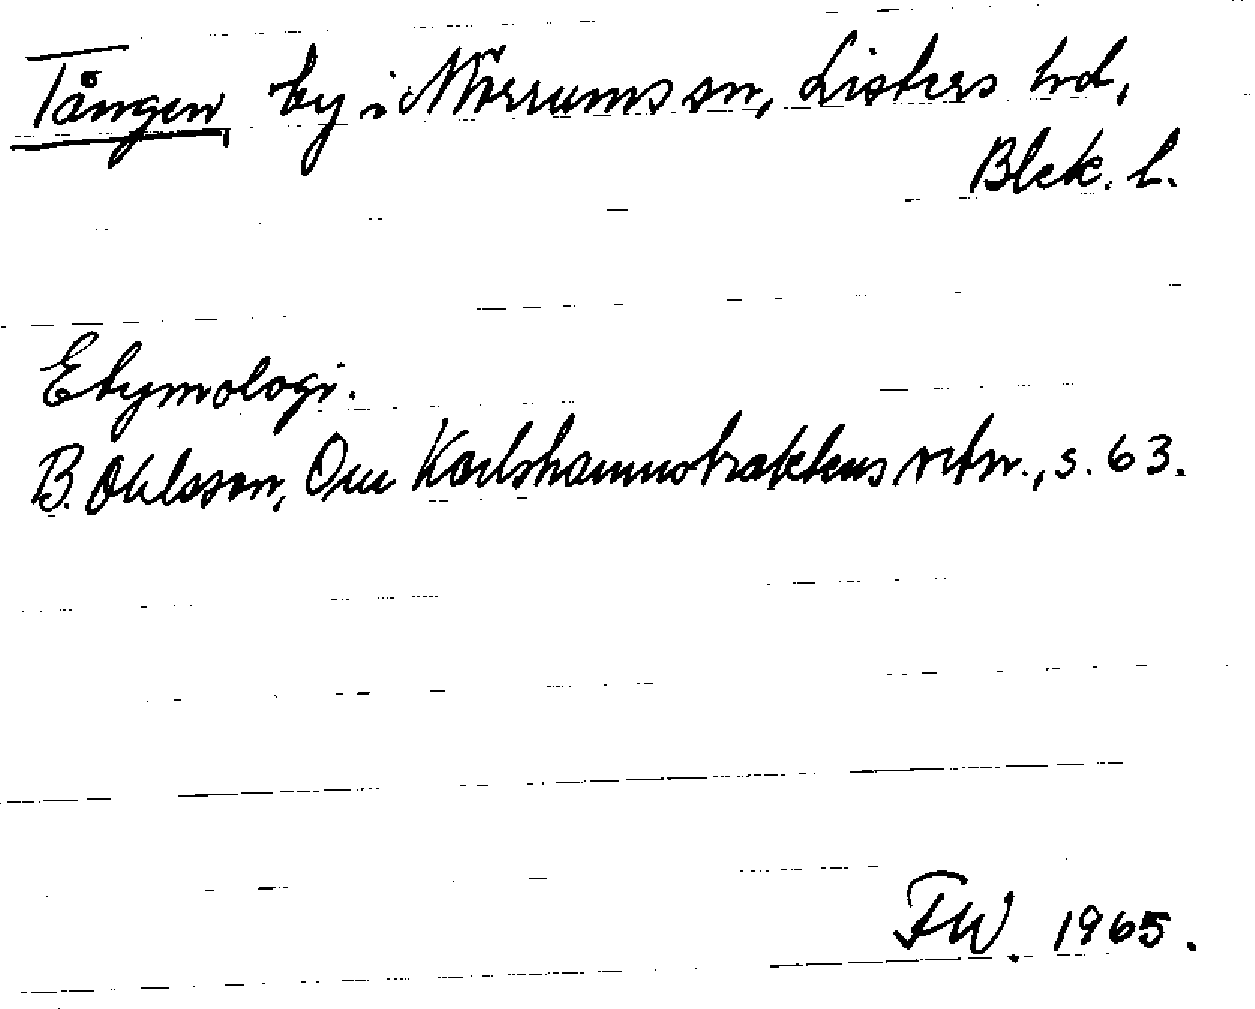 Tången by i Mörrums sn, Listers hd,
Blek. l.
Etymologi.
B. Ohlsson, Om Karlshamnstraktens ortn., s. 63.
FW. 1965.